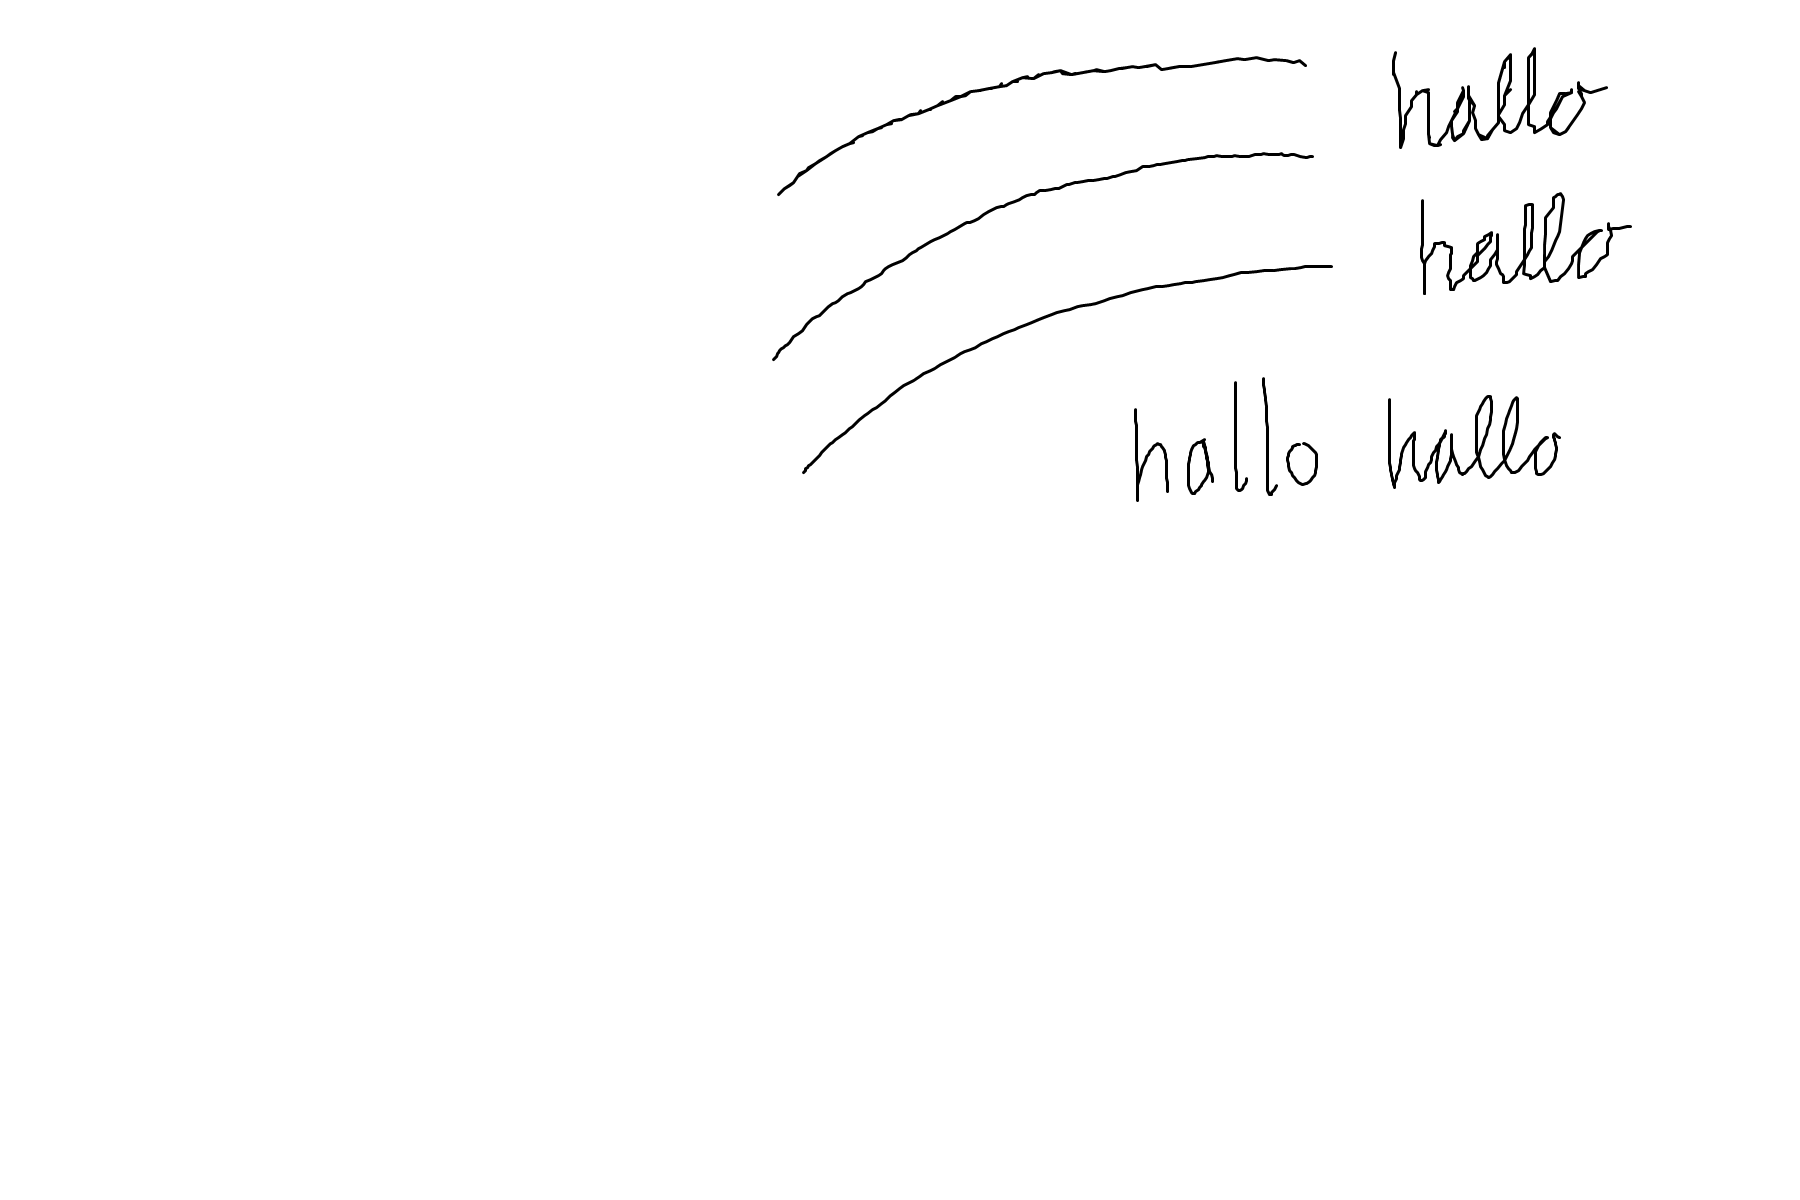 hallo
hallo
hallo hallo